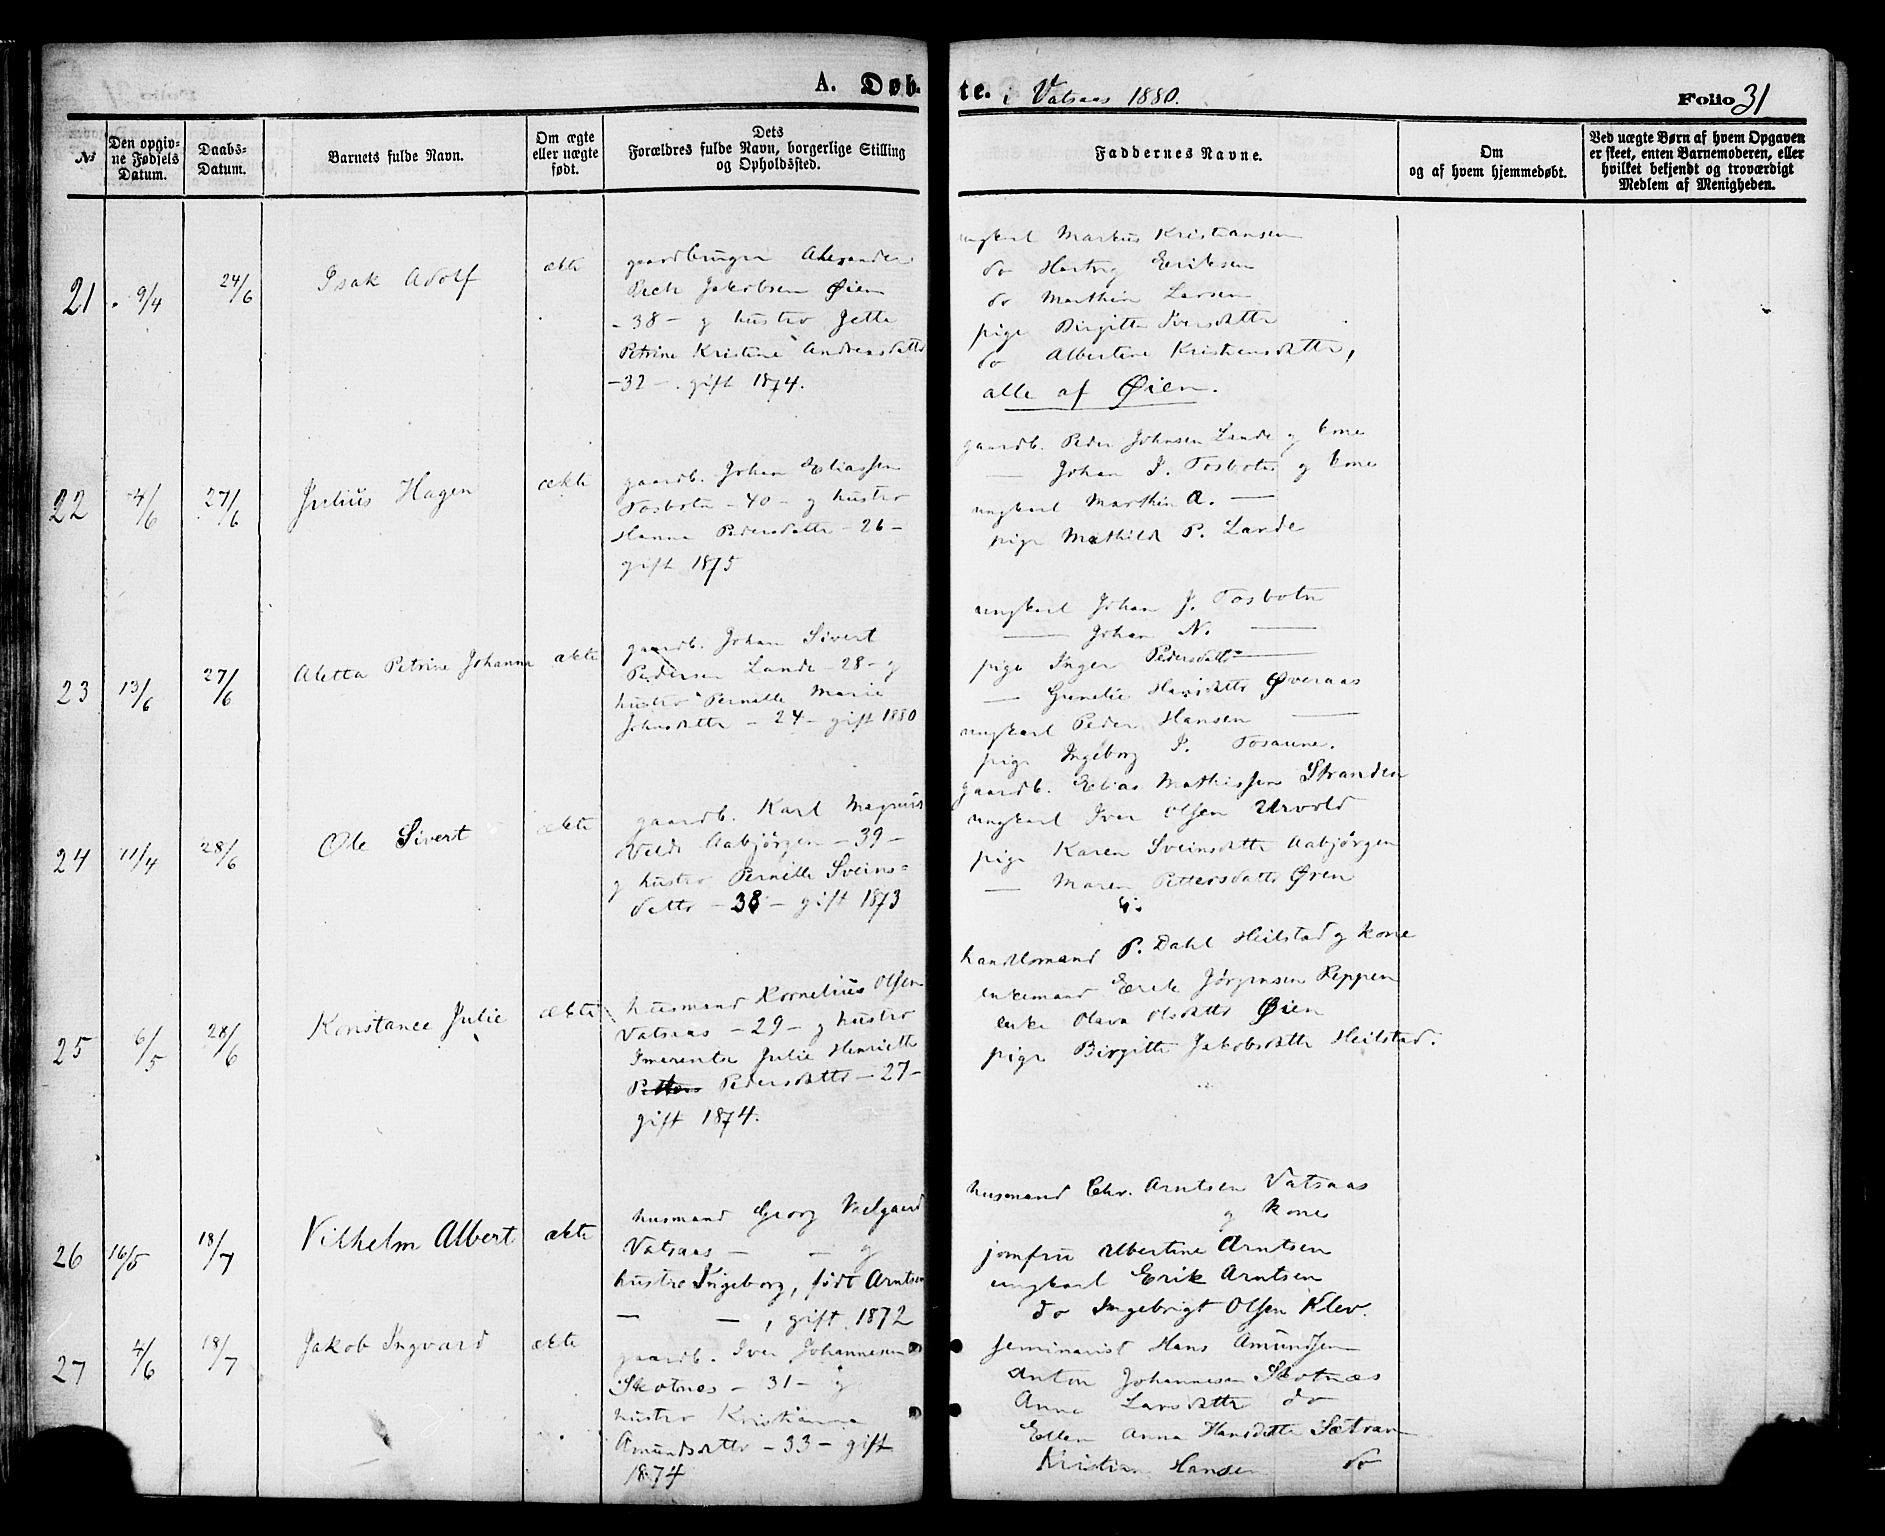 A. Døb-
te. i Vatsaas 1880.
Folio 31
№
Den opgiv-
ne Fødsels
Datum.
Daabs-
Datum.
Barnets fulde Navn.
Om ægte
eller uægte
født.
Dets
Forældres fulde Navn, borgerlige Stilling
og Opholdssted.
Faddernes Navne.
Om
og af hvem hjemmedøbt.
Ved uægte Børn af hvem Opgaven
er skeet, enten Barnemoderen, eller
hvilket bekjendt og troværdigt
Medlem af Menigheden.
21 9/4 24/6 Isak Adolf ækte
gaardbruger Alexander
Pech Jakobsen Øien
-38- g hustro Jette
Petrine Kristine Andreasdatter
-32-. gift 1874.
ungkarl Markus Kristiansen
do Hartvig Eriksen
do Marthin Larsen
pige Birgitte Iversdatter
do Albertine Kristensdatter,
alle af Øien.
22 4/6 27/6 Julius Hagen ækte
gaardb. Johan Eliassen
Tosbotn -40- g hustro
Hanna Pedersdatter -26-
gift 1875
gaardb. Peder Johnsen Lande g kone
— Johan I. Tosbotn g kone
ungkarl Marthin A. —
pige Mathilde P. Lande
23 13/6 27/6 Aletta Petrine Johanna ækte
gaardb. Johan Sivert
Pedersen Lande -28- g
hustro Pernille Marie
Johnsdatter -24- gift 1880
ungkarl Johan J. Tosbotn
— Johan N. —
pige Inger Pedersdatter —
— Grunelie Hansdatter Øveraas
ungkarl Peder Hansen —
pige Ingeborg I. Tosaune.
24 11/4 28/6 Ole Sivert ækte
gaardb. Karl Magnus
Velde Aabjørgen -39-
g hustro Pernille Sveins-
datter -38- gift 1873
gaardb. Elias Mathissen Stranden
ungkarl Iver Olsen Urvold
pige Karen Sveinsdatter Aabjørgen
— Maren Pettersdatter Øren
25 6/5 28/6 Konstance Julie ækte
husmand Kornelius Olsen
Vatsaas -29- g hustro
Imerentse Julie Henriette
Petters Pedersdatter -27-
gift 1874.
handlsmand P. Dahl Heilstad g kone
enkemand Erik Jørgensen Reppen
enke Olava Olsdatter Øien
pige Birgitte Jakobsdatter Heilstad.
26 16/5 18/7 Vilhelm Albert ækte
husmand Georg Vedgaard
Vatsaas — — g
hustro Ingeborg, født Arntsen
— —, gift 1872
husmand Chr. Arntsen Vatsaas
g kone
jomfru Albertine Arntsen
ungkarl Erik Arntsen
do Ingebrigt Olsen Klev.
27 4/6 18/7 Jakob Ingvard ækte
gaardb. Iver Johannesen
Skotnes -31- g
hustro Kristianna
Amundsdatter -33- gift
1874
seminarist Hans Amundsen
Anton Johannesen Skotnes
Anne Larsdatter do
Ellen Anna Hansdatter Sætran
Kristian Hansen do